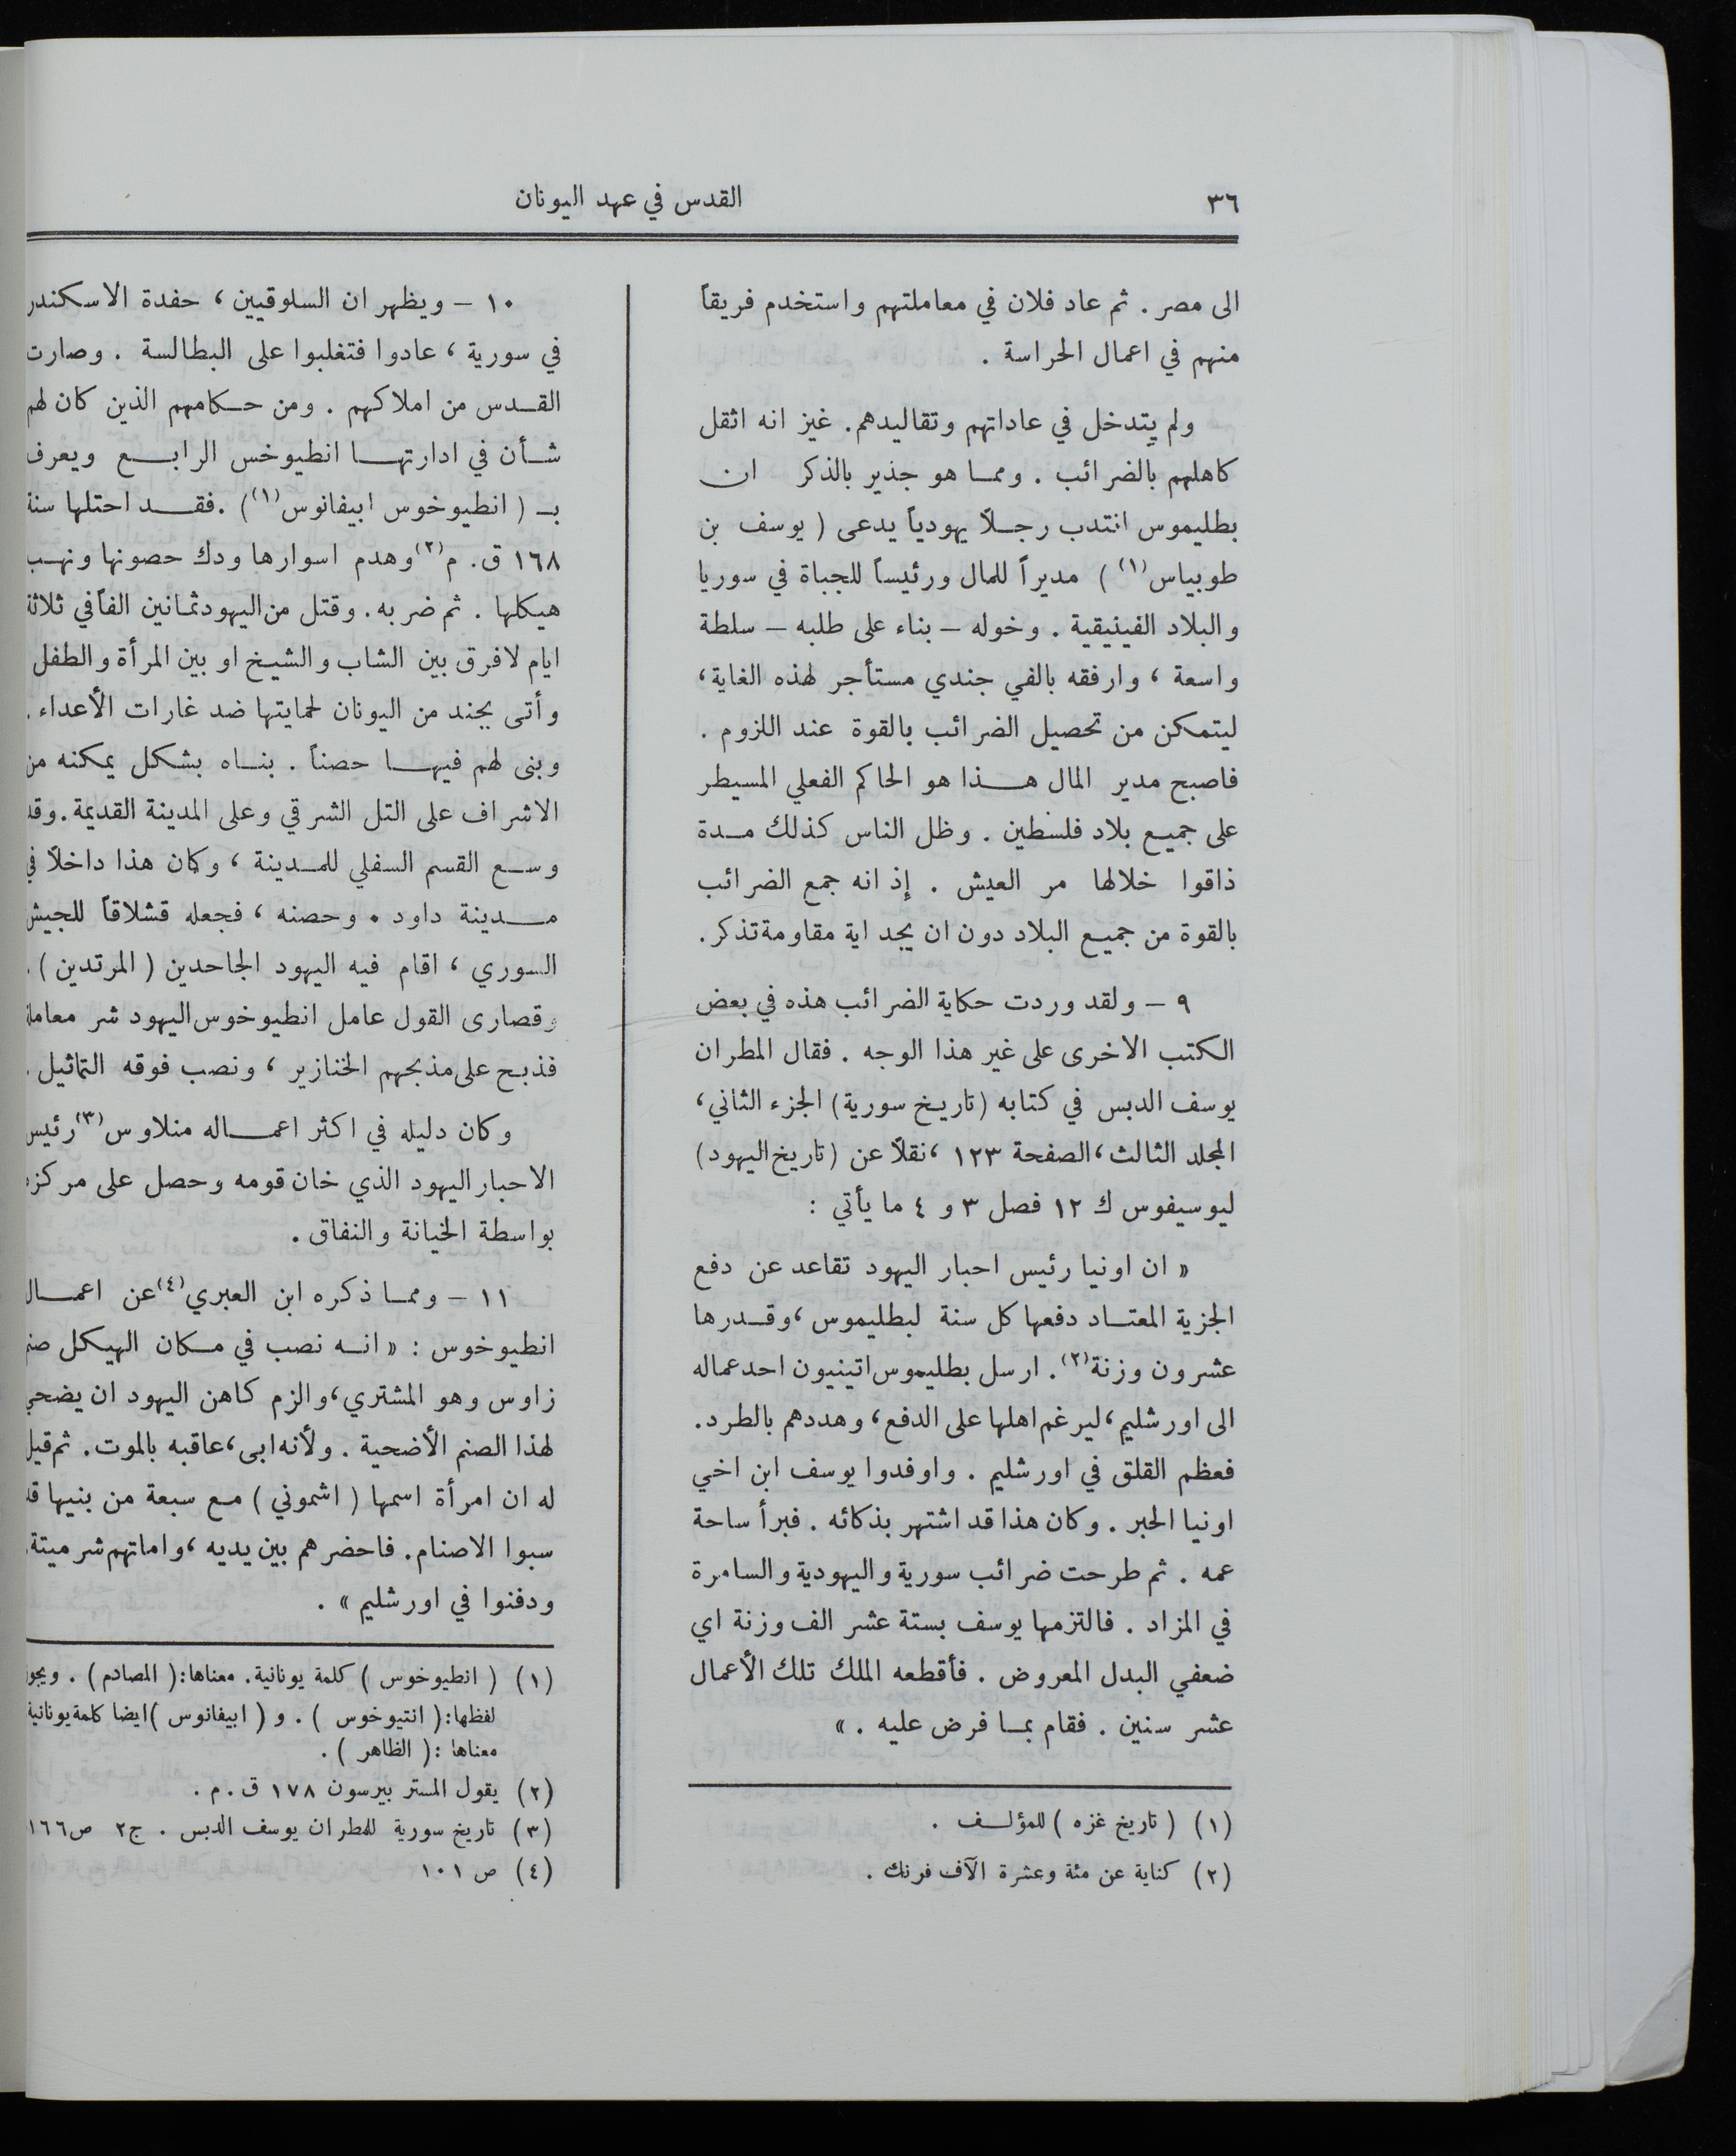 ٣٦
القدس في عهد اليونان
الى مصر . ثم عاد فلان في معاملتهم واستخدم فريقاً
منهم في اعمال الحراسة .
ولم يتدخل في عاداتهم وتقاليدهم . غيز انه اثقل
كاهلهم بالضرائب . ومما هو جذير بالذكر ان
بطليموس انتدب رجلاً يهودياً يدعى ( يوسف بن
طوبياس (١) ) مديراً للمال ورئيساً للجباة في سوريا
والبلاد الفينيقية . وخوله – بناء على طلبه – سلطة
واسعة ، وارفقه بالفي جندي مستأجر لهذه الغاية ،
ليتمكن من تحصيل الضرائب بالقوة عند اللزوم .
فاصبح مدير المال هذا هو الحاكم الفعلي المسيطر
على جميع بلاد فلسطين . وظل الناس كذلك مدة
ذاقوا خلالها مر العيش . إذ انه جمع الضرائب
بالقوة من جميع البلاد دون ان يجد اية مقاومة تذكر .
٩ – ولقد وردت حكاية الضرائب هذه في بعض
الكتب الاخرى على غير هذا الوجه . فقال المطران
يوسف الدبس في كتابه (تاريخ سورية) الجزء الثاني ،
المجلد الثالث ، الصفحة ١٢٣ ، نقلاً عن (تاريخ اليهود)
ليوسيفوس ك ١٢ فصل ٣ و ٤ ما يأتي :
« ان اونيا رئيس احبار اليهود تقاعد عن دفع
الجزية المعتاد دفعها كل سنة لبطليموس ، وقدرها
عشرون وزنة (٢) . ارسل بطليموس اتينيون احد عماله
الى اورشليم ، ليرغم اهلها على الدفع ، وهددهم بالطرد .
فعظم القلق في اورشليم . واوفدوا يوسف ابن اخي
اونيا الحبر . وكان هذا قد اشتهر بذكائه . فبرأ ساحة
عمه . ثم طرحت ضرائب سورية واليهودية والسامرة
في المزاد . فالتزمها يوسف بستة عشر الف وزنة اي
ضعفي البدل المعروض . فأقطعه الملك تلك الأعمال
عشر سنين . فقام بما فرض عليه . »
(١) ( تاريخ غزه ) للمؤلف .
(٢) كناية عن مئة وعشرة الآف فرنك .
١٠ – ويظهر ان السلوقيين ، حفدة الاسكندر
في سورية ، عادوا فتغلبوا على البطالسة . وصارت
القدس من املاكهم . ومن حكامهم الذين كان لهم
شأن في ادارتها انطيوخس الرابع ويعرف
بـ ( انطيوخوس ابيفانوس (١) ) . فقد احتلها سنة
١٦٨ ق . م (٢) وهدم اسوارها ودك حصونها ونهب
هيكلها . ثم ضربه . وقتل من اليهود ثمانين الفاً في ثلاثة
ايام لا فرق بين الشاب والشيخ او بين المرأة والطفل
وأتى بجند من اليونان لحمايتها ضد غارات الأعداء .
وبنى لهم فيها حصناً . بناه بشكل يمكنه من
الاشراف على التل الشرقي وعلى المدينة القديمة . وقد
وسع القسم السفلي للمدينة ، وكان هذا داخلاً في
مدينة داود . وحصنه ، فجعله قشلاقاً للجيش
السوري ، اقام فيه اليهود الجاحدين ( المرتدين ) .
وقصارى القول عامل انطيوخوس اليهود شر معاملة
فذبح على مذبحهم الخنازير ، ونصب فوقه التماثيل .
وكان دليله في اكثر اعماله منلاوس (٣) رئيس
الاحبار اليهود الذي خان قومه وحصل على مركزه
بواسطة الخيانة والنفاق .
١١ – ومما ذكره ابن العبري (٤) عن اعمال
انطيوخوس : « انه نصب في مكان الهيكل صنم
زاوس وهو المشتري ، والزم كاهن اليهود ان يضحي
لهذا الصنم الأضحية . ولأنه ابى ، عاقبه بالموت . ثم قيل
له ان امرأة اسمها ( اشموني ) مع سبعة من بنيها قد
سبوا الاصنام . فاحضرهم بين يديه ، واماتهم شر ميتة .
ودفنوا في اورشليم » .
(١) ( انطيوخوس ) كلمة يونانية . معناها : ( المصادم ) . ويجوز
لفظها : ( انتيوخوس ) . و ( ابيفانوس ) ايضا كلمة يونانية
معناها : ( الظاهر ) .
(٢) يقول المستر بيرسون ١٧٨ ق . م .
(٣) تاريخ سورية للمطران يوسف الدبس . ج٢ ص١٦٦
(٤) ص ١٠١